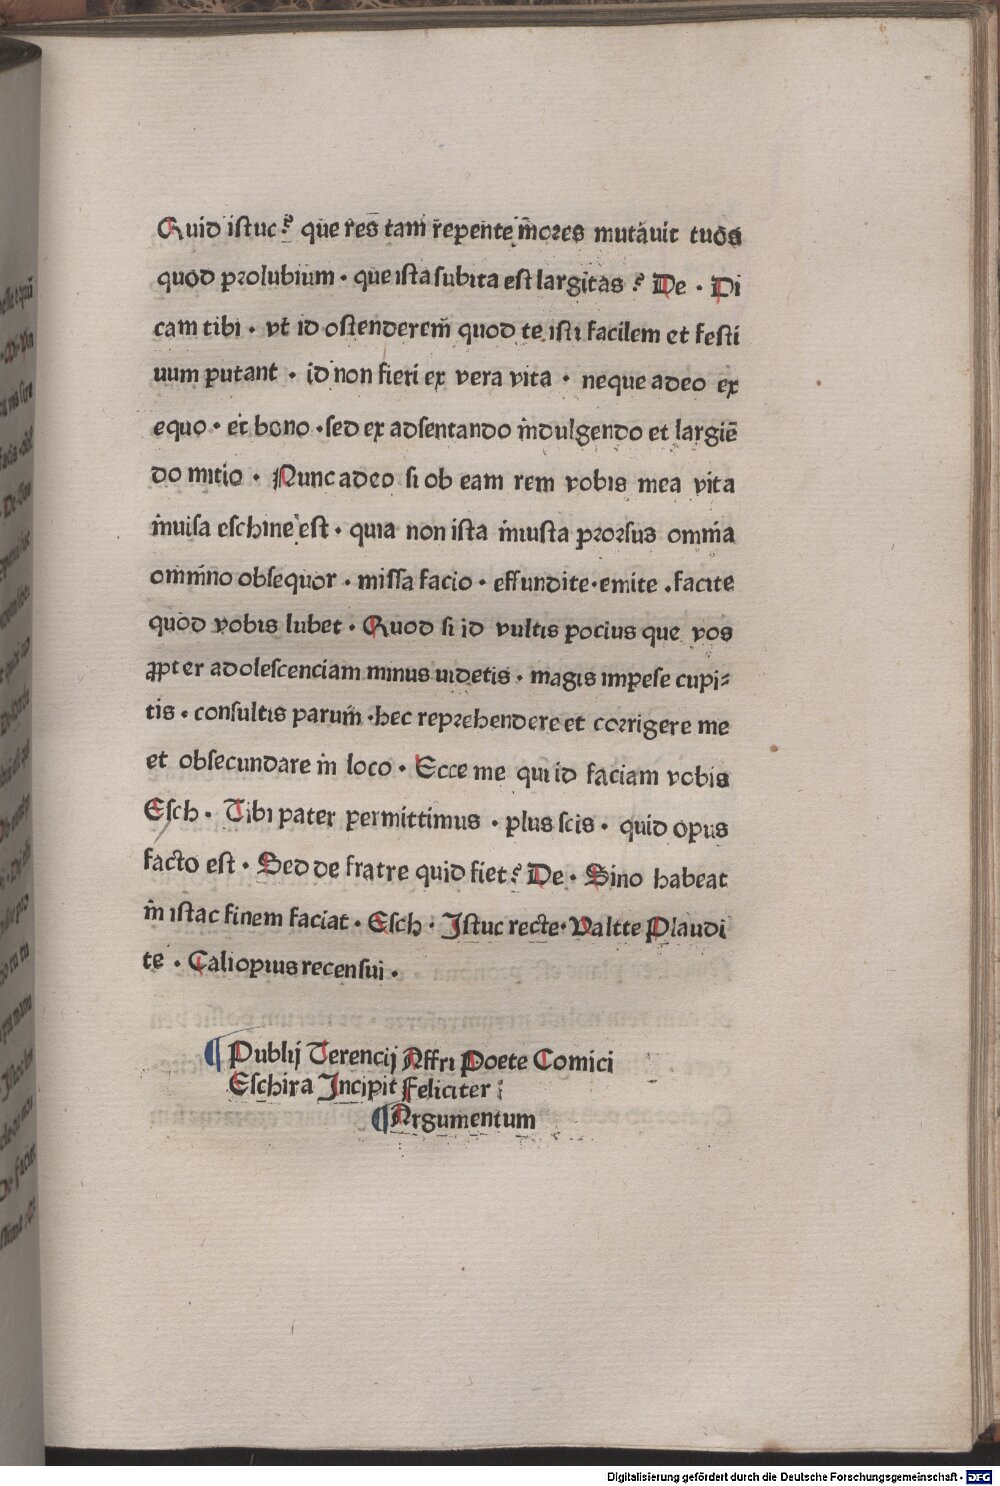 Quid iſtuc? que res tam repente mores mutauit tuos
quod prolubium · que iſta ſubita eſt largitas? De · Di
cam tibi · vt id oſtenderem quod te iſti facilem et feſti
uum putant · id non fieri ex vera vita · neque adeo ex
equo · et bono · ſed ex adſentando indulgendo et largiē
do mitio · Nunc adeo ſi ob eam rem vobis mea vita
inuiſa eſchine eſt · quia non iſta iniuſta prorſus omnia
omnino obſequor · miſſa facio · effundite · emite . facite
quod vobis lubet · Quod ſi id vultis pocius que vos
ꝓpter adoleſcenciam minus uidetis · magis impeſe cupi⸗
tis · conſultis parum · hec reprehendere et corrigere me
et obſecundare in loco · Ecce me qui id faciam vobis
Eſch · Tibi pater permittimus · plus ſcis · quid opus
facto eſt · Sed de fratre quid fiet? De · Sino habeat
in iſtac finem faciat · Eſch · Iſtuc recte · Valtte Plaudi
te · Caliopius recenſui ·
¶ Publij Terencij Affri Poete Comici
Eſchira Incipit Feliciter :
¶ Argumentum
Digitalisierung gefördert durch die Deutsche Forschungsgemeinschaft - DFG